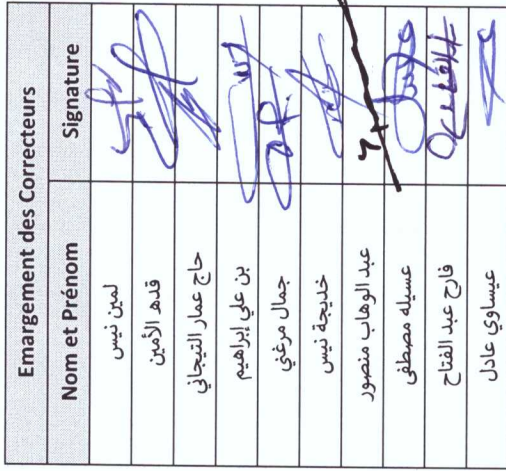 Emargement des Correcteurs
Nom et Prénom Signature
لمين نيس
قدهـ الأمين
حاج عمار التيجاني
بن علي إبراهيم
جمال مرغني
خديجة نيس
عبد الوهاب منصور
عسيله مصطفى
فارح عبد الفتاح
عيساوي عادل